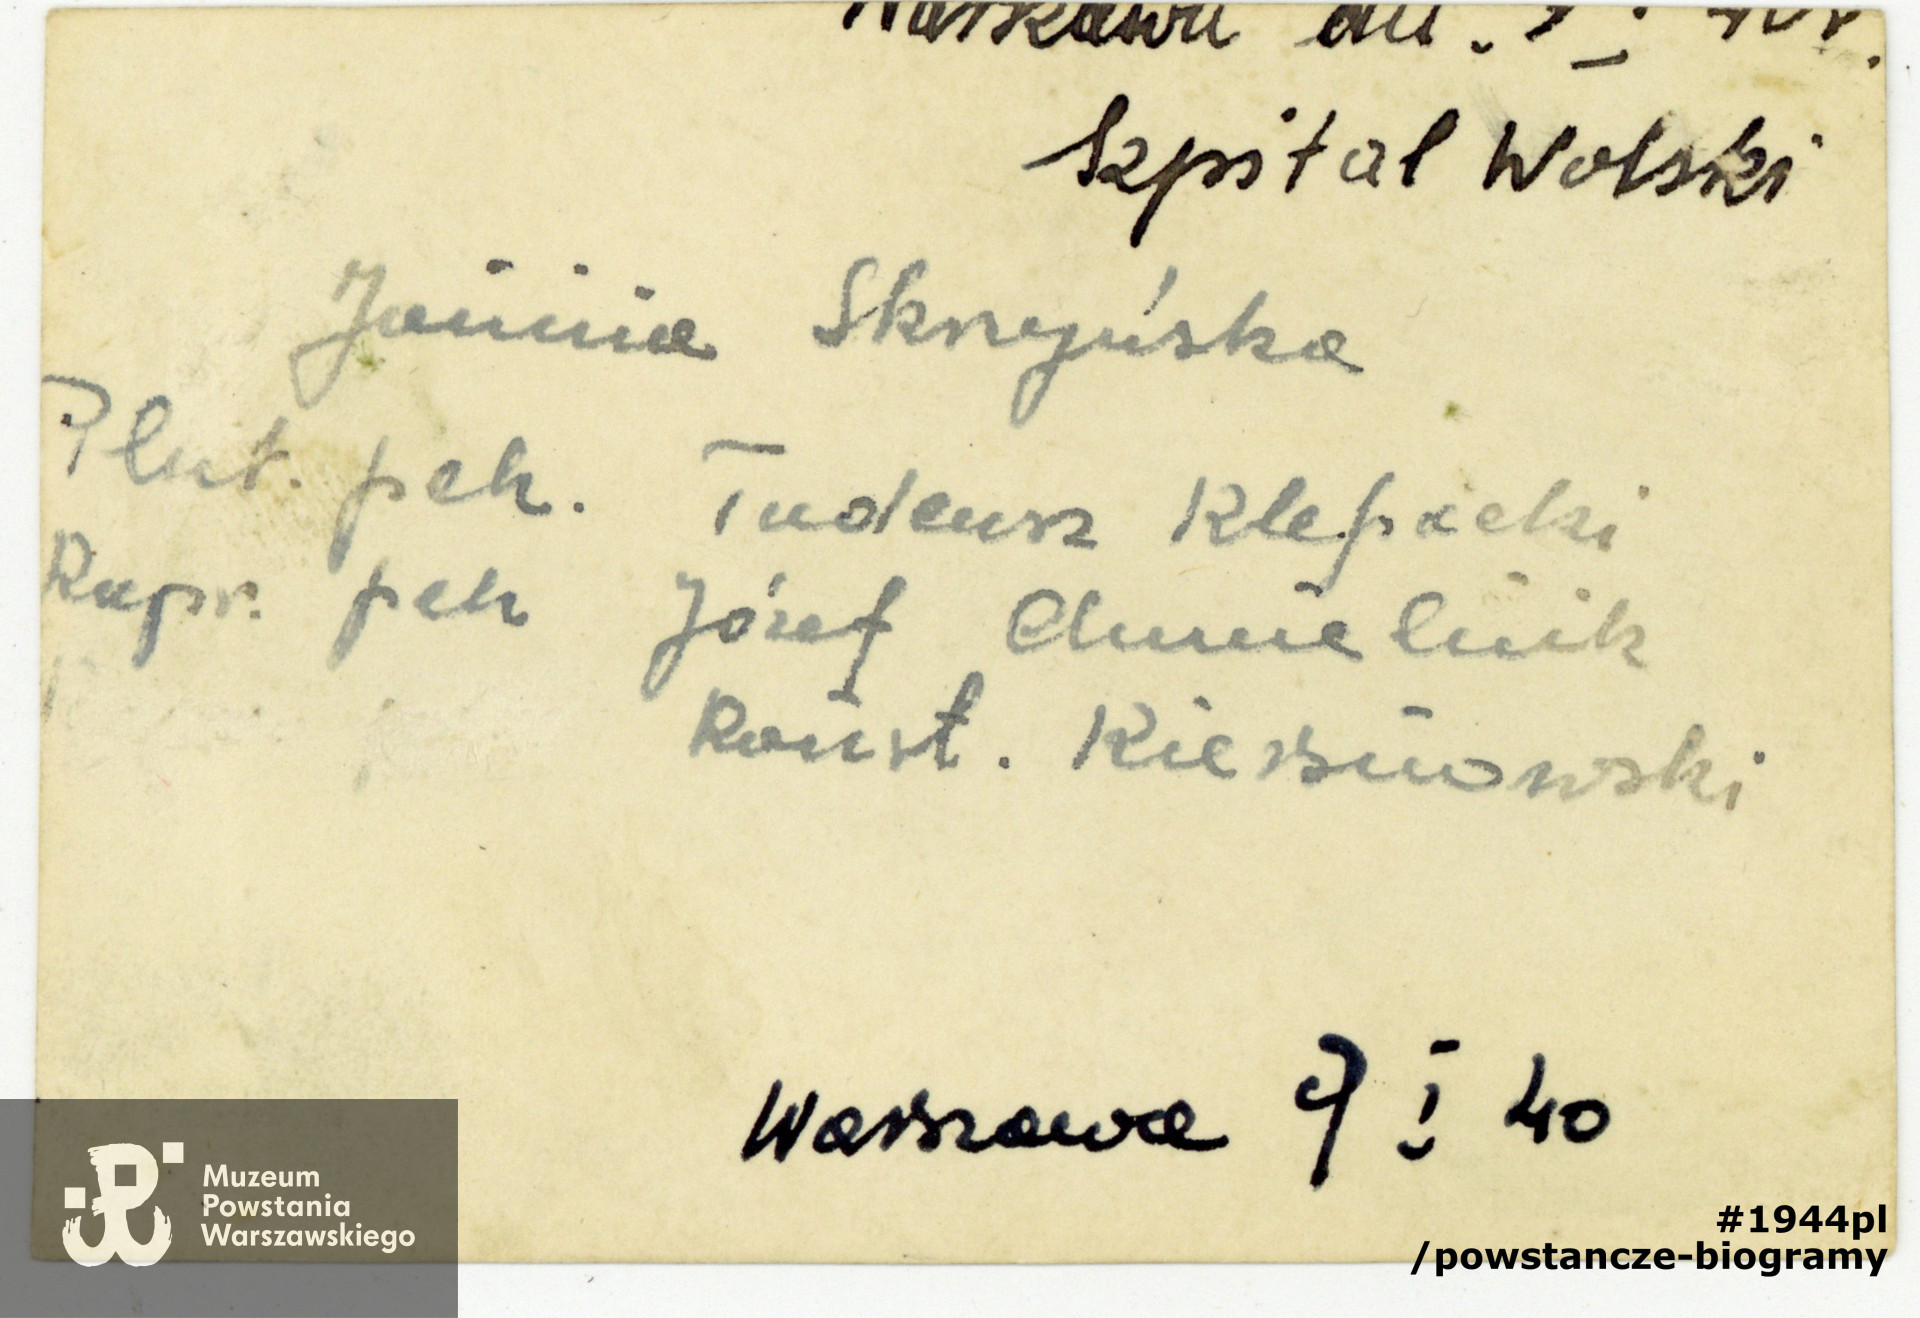 Warszawa dn.
Szpital Wolski
Janina Skrzyńska
Plut. pch. Tadeusz Klepacki
Kapr. pch Józef Chmielnik
Konst. Kiersnowski
Warszawa 9 I 40
Muzeum
Powstania
Warszawskiego
#1944pl
/powstancze-biogramy